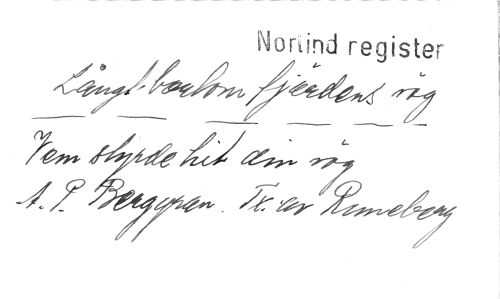 Norlind register
Långt bortom fjärdens våg
Vem styrde hit din våg
A. P. Berggren. Tx. av Runeberg